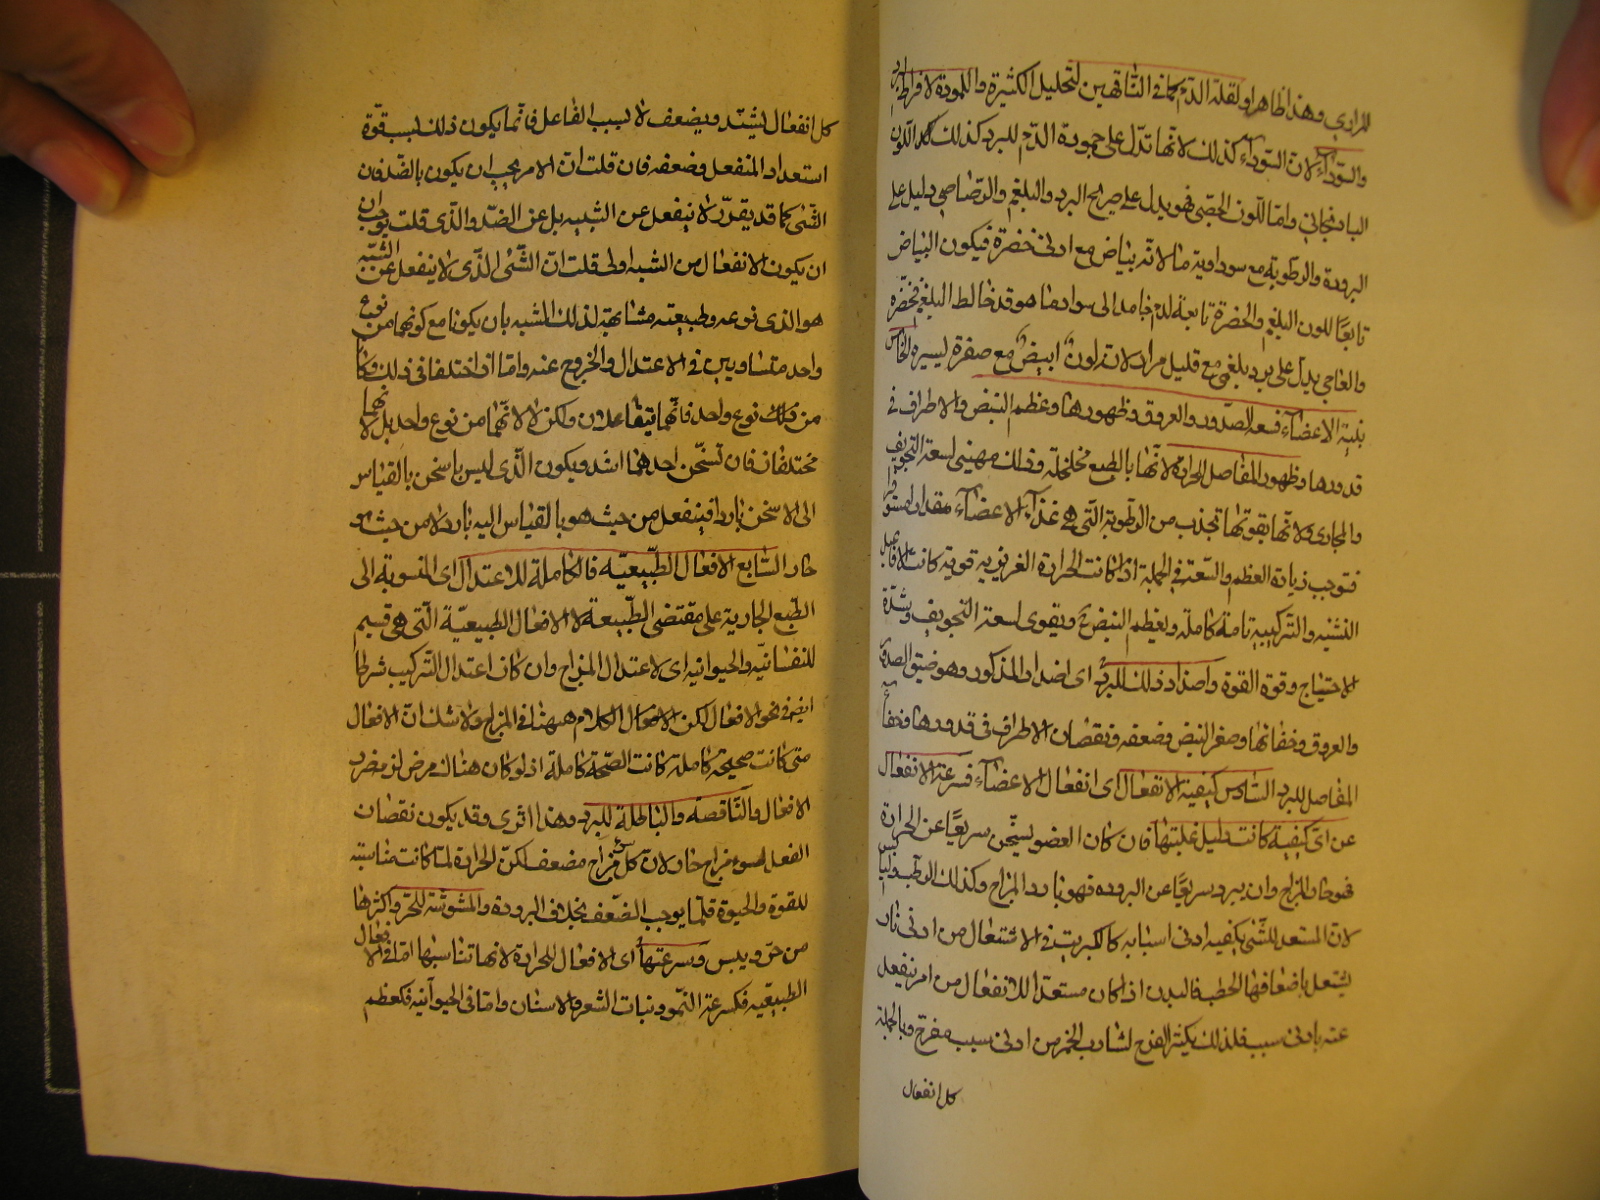 المراري وهذا ظاهر او لقلة الدم كما في الناقهين لتحليل الكثيرة والكمودة لافراط البرد
والسوداء لان السوداء كذلك لانها تدل على جمودة الدم للبرد كذلك كمد اللون
الباذنجاني واما اللون الجصي فهو يدل على صريح البرد والبلغم والرصاصي دليل على
البرودة والرطوبة مع سوداوية ما لانه بياض مع ادنى خضرة فيكون البياض
تابعا للون البلغم والخضرة تابعة لدم جامد الى سواد ما هو قد خالط البلغم فخضره
والعاجي يدل على برد بلغمي مع قليل مرار لانه لون ابيض مع صفرة يسيرة الخامس
هيئة الاعضاء فسعة الصدور والعروق وظهورها وعظم النبض والاطراف في
قدورها وظهور المفاصل للحرارة لانها بالطبع مخلخلة وذلك مهيئ لسعة التجويف
والمجاري ولانها بقوتها تجذب من الرطوبة التي هي غذاء الاعضاء مقدارا
فتوجب زيادة العظم والسعة في الجملة اذا كانت الحرارة الغريزية قوية كانت الافاعيل
النشئية والتركيبية تامة كاملة ويعظم النبض ح ويقوى لسعة التجويف وشدة
الاحتياج وقوة القوة واضداد ذلك للبرد اى اضداد المذكور وهو ضيق الصدر
والعروق وخفائها وصغر النبض وضعفه ونقصان الاطراف في قدورها وخفاء
المفاصل للبرد السادس كيفية الانفعال اى انفعال الاعضاء فسرعة الانفعال
عن اى كيفية كانت دليل غلبتها فان كان العضو يسخن سريعا عن الحرارة
فهو حار المزاج وان يبرد سريعا عن البرودة فهو بارد المزاج وكذلك الرطب واليابس
لان المستعد للشئ يكفيه ادنى اسبابه كالكبريت في الاشتعال من ادنى نار
يشتعل باضعافها الحطبة فالبدن اذا كان مستعدا للانفعال من امر ينفعل
عنه بادنى سبب فلذلك يكثر الفرح لشارب الخمر من ادنى سبب مفرح وبالجملة
كل انفعال
كل انفعال يشتد ويضعف لا لسبب الفاعل فانما يكون ذلك لسبب قوة
استعداد المنفعل وضعفه فان قلت ان الامر يجب ان يكون بالضد فان
الشئ كما قد يقدر لا ينفعل عن الشبيه بل عن الضد والذى قلت يوجب ان
ان يكون الانفعال من الشبه اولى قلت ان الشئ الذى لا ينفعل عن الشبه
هو الذى نوعه وطبيعته مشابهة لذلك المشبه بان يكونا مع كونهما من نوع
واحد متساويين في الاعتدال والخروج عنه واما ان اختلفا في ذلك وكانا
من ذلك نوع واحد فانهما يتفاعلان ولكن لا لانهما من نوع واحد بل لانهما
مختلفان فان تسخن احدهما اشد ويكون الذى ليس باسخن بالقياس
الى الاسخن باردا فينفعل من حيث هو بالقياس اليه بارد لا من حيث هو
حار السابع الافعال الطبيعية فالكاملة للاعتدال اى المنسوبة الى
الطبع الجارية على مقتضى الطبيعة لا الافعال الطبيعية التى هي قسيم
للنفسانية والحيوانية اى لاعتدال المزاج وان كان اعتدال التركيب شرطا
ايضا في نحو الافعال لكن الكلام ههنا في المزاج ولا شك ان الافعال
متى كانت صحيحة كاملة كانت الصحة كاملة اذ لو كان هناك مرض لزم ضرر
الافعال والناقصة والباطلة للبرد وهذا اثرى وقد يكون نقصان
الفعل لسوء مزاج حار لان كل سوء مزاج مضعف لكن الحرارة لما كانت مناسبة
للقوة والحيوة قلما يوجب الضعف بخلاف البرودة والمشوشة للحر واكثرها
من حر ويبس وسرعتها اى الافعال للحرارة لانها تناسبها اما في الافعال
الطبيعية فكسرعة النمو ونبات الشعر والاسنان واما في الحيوانية فكعظم